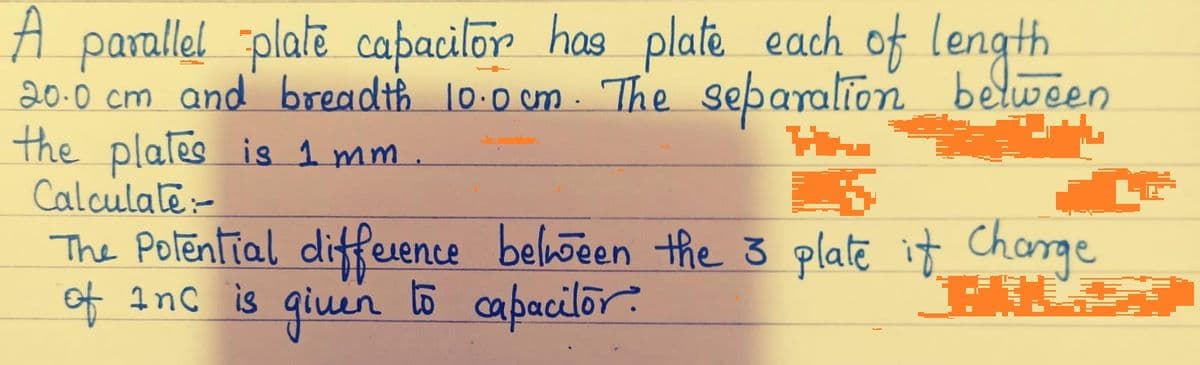 A parallel plate capacitor has plate each of length
20.0 cm and breadth 10.0 cm. The separation between
the plates is 1 mm.
Calculate:-
The Potential difference between the 3 plate if Charge
of 1nC is given to capacitor?